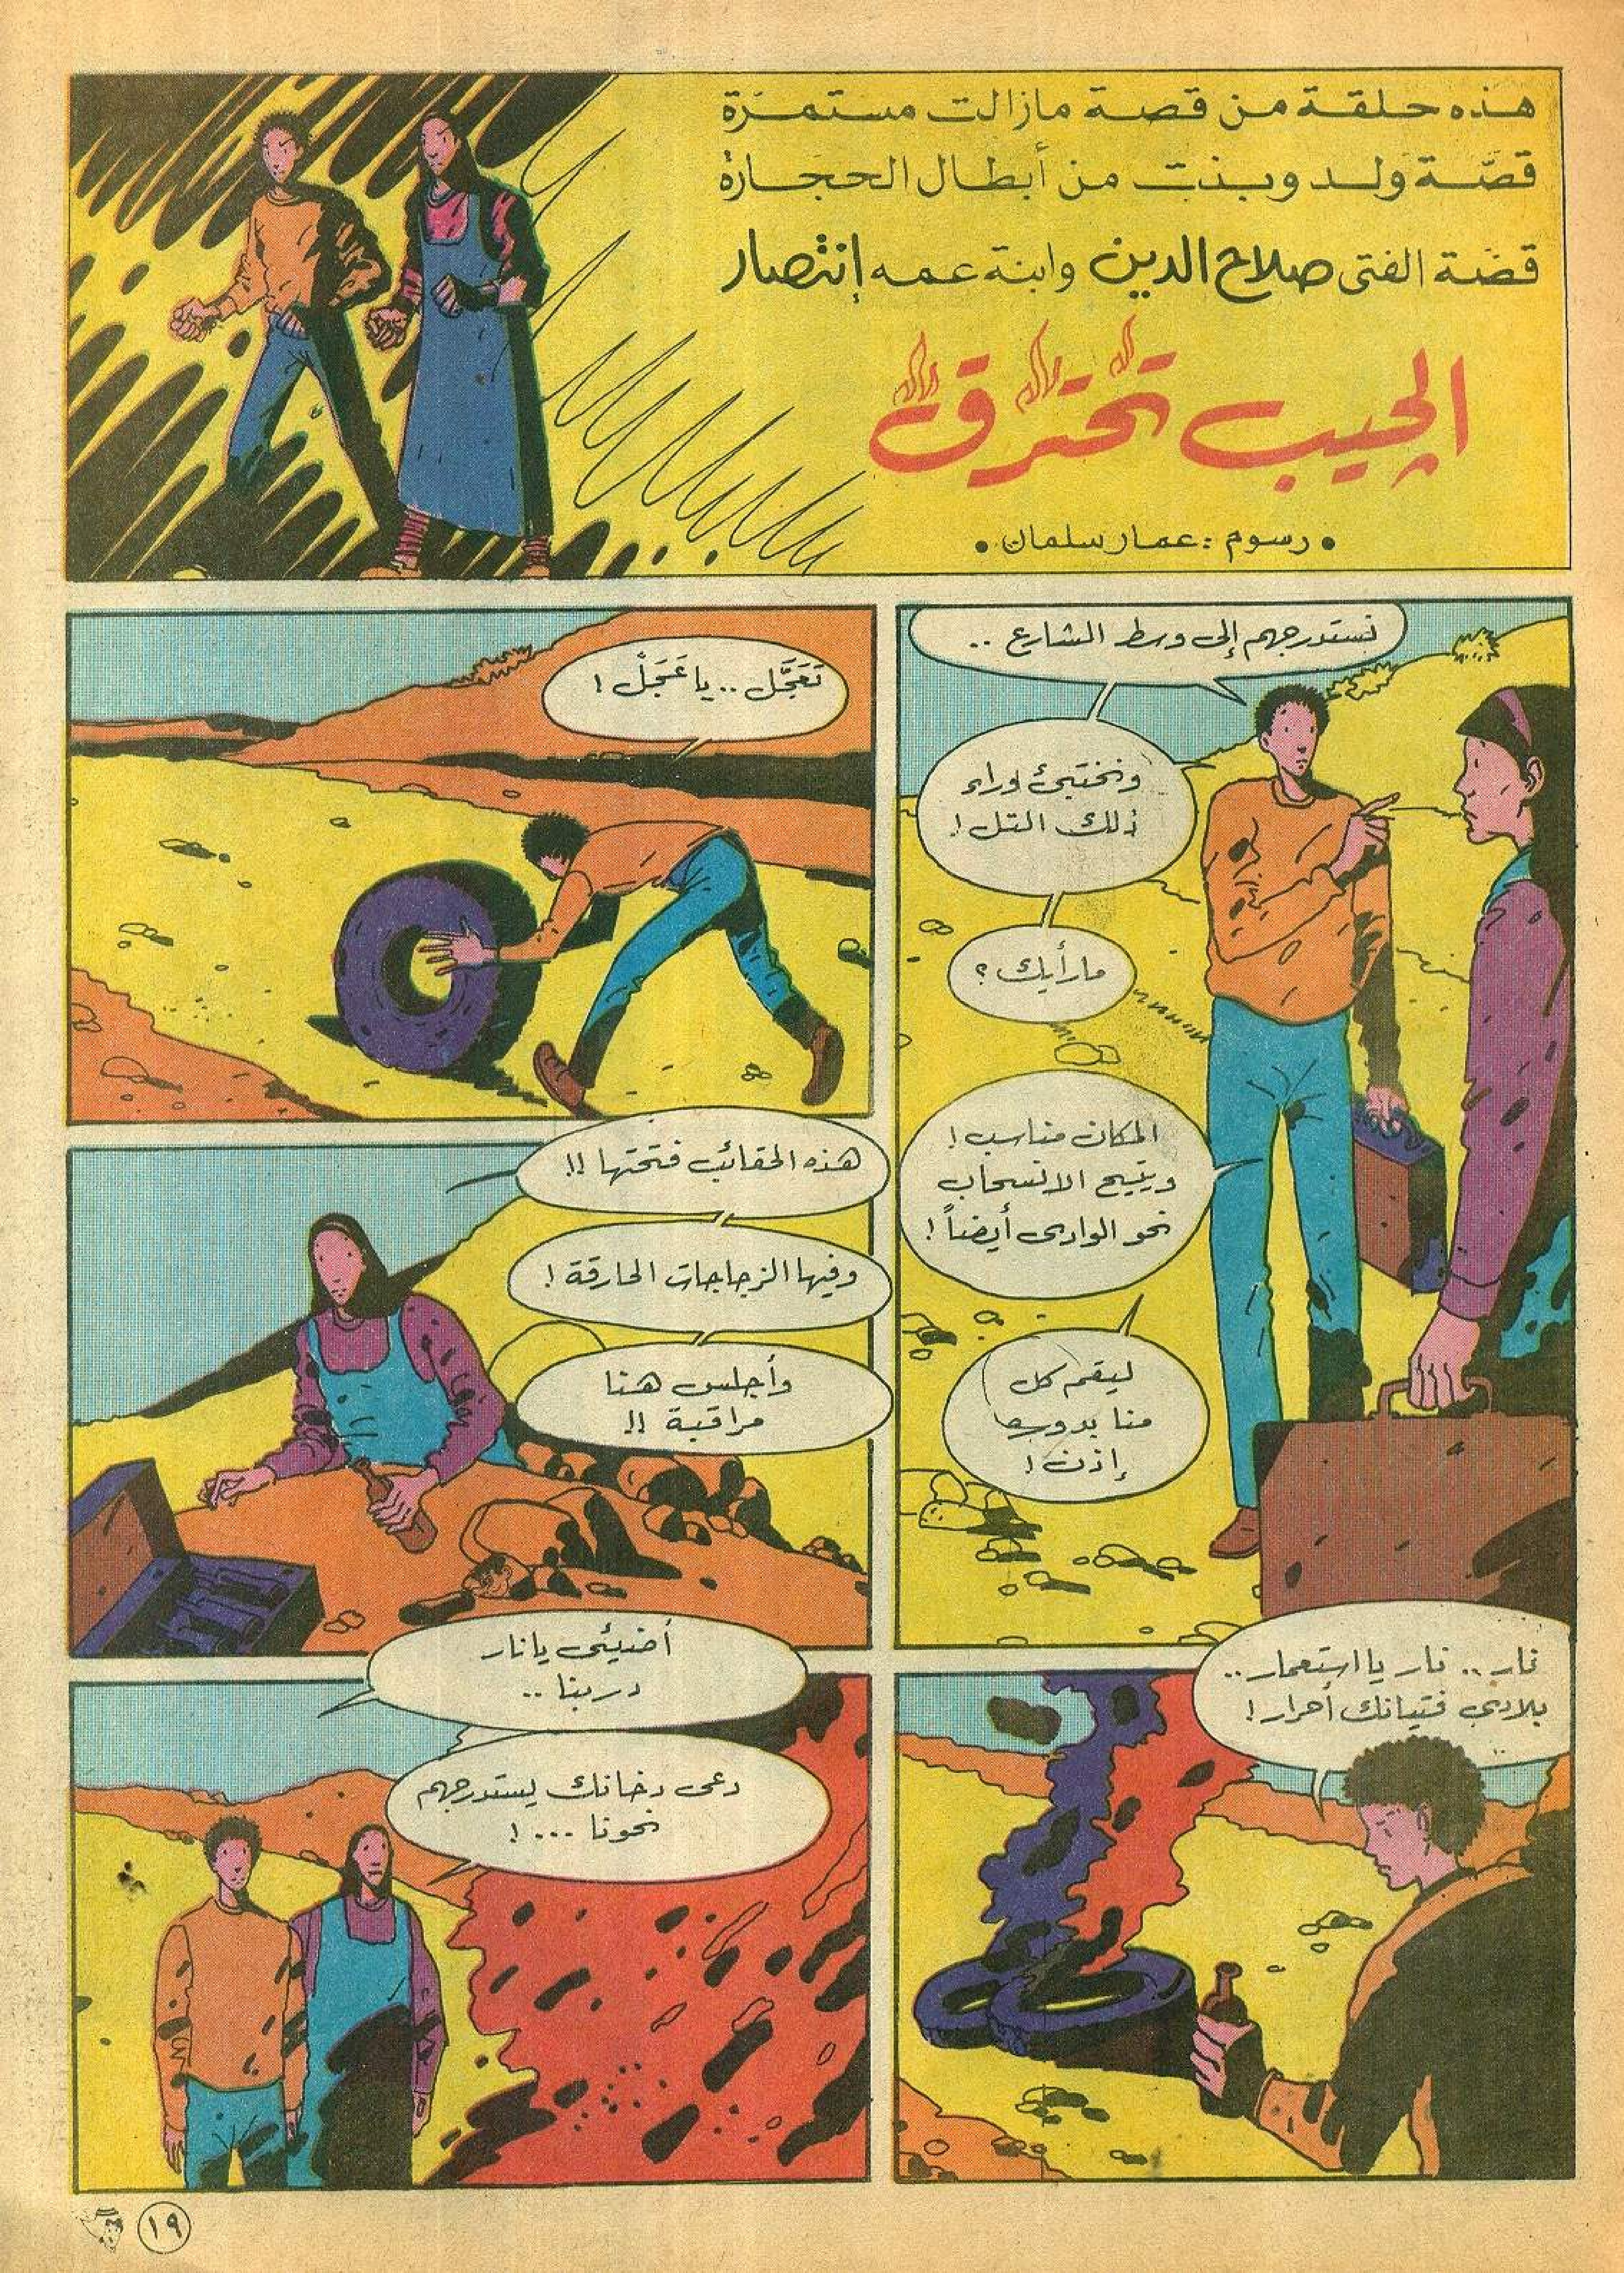 هذه حلقة من قصة مازالت مستمرّة
قصّة ولد وبنت من أبطال الحجارة
قصّة الفتى صلاح الدين وابنة عمه إنتصار
الجيب تحترق
• رسوم : عمار سلمان •
نستدرجهم إلى وسط الشارع ..
ونختبئ وراء
ذلك التل !
ما رأيك ؟
المكان مناسب !
ويتيح الانسحاب
نحو الوادي أيضاً !
ليقم كل
منا بدوره
إذن !
تَعَجَّل .. يا عَجَلْ !
هذه الحقائب فتحتها !!
وفيها الزجاجات الحارقة !
وأجلس هنا
مراقبة !!
نار .. نار يا استعمار ..
بلادي فتيانك أحرار !
أضيئي يا نار
دربنا ..
دعي دخانك يستدرجهم
نحونا ... !
١٩